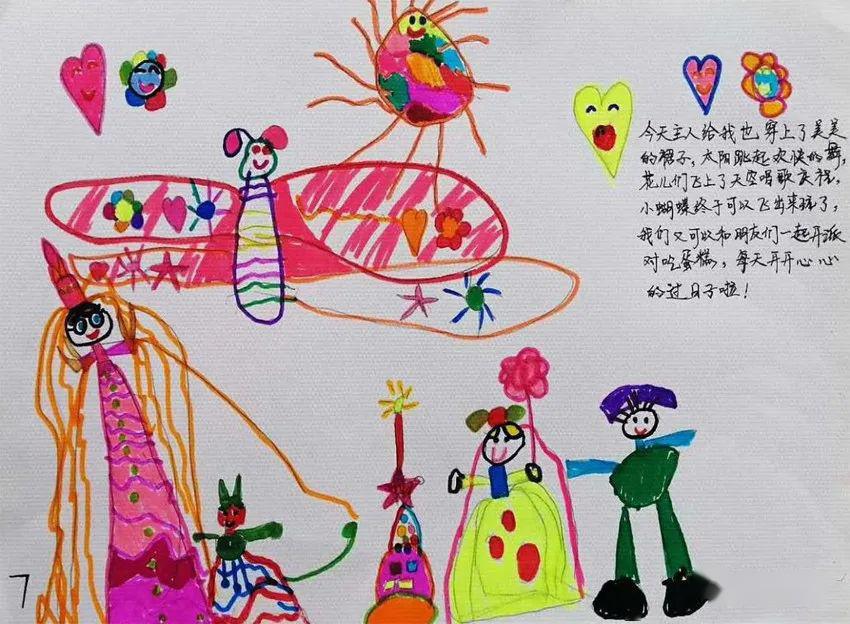 今天主人给我也穿上了美美
的裙子，太阳跳起欢快的舞，
花儿们飞上了天空唱歌庆祝，
小蝴蝶终于可以飞出来玩了，
我们又可以和朋友们一起开派
对吃蛋糕，每天开开心心
的过日子啦！
7